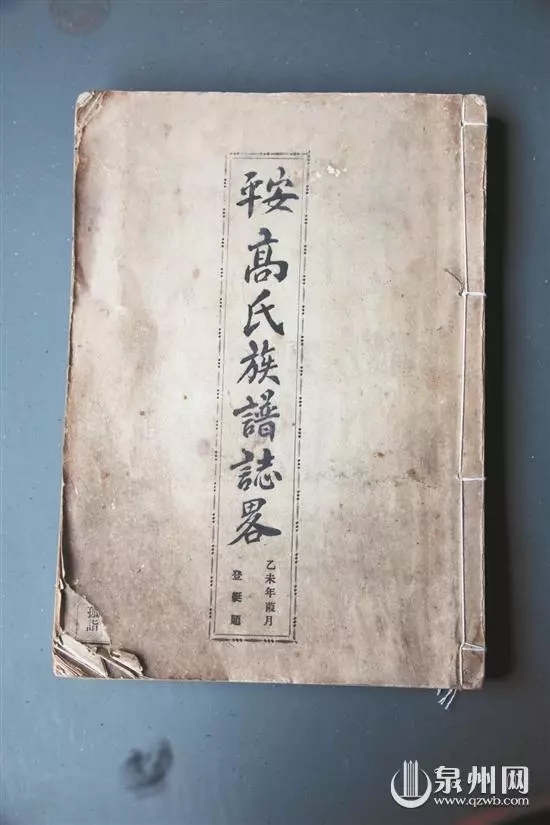 安平高氏族譜誌畧
乙未年葭月
登艇題
孤詣
泉州网
www.qzwb.com